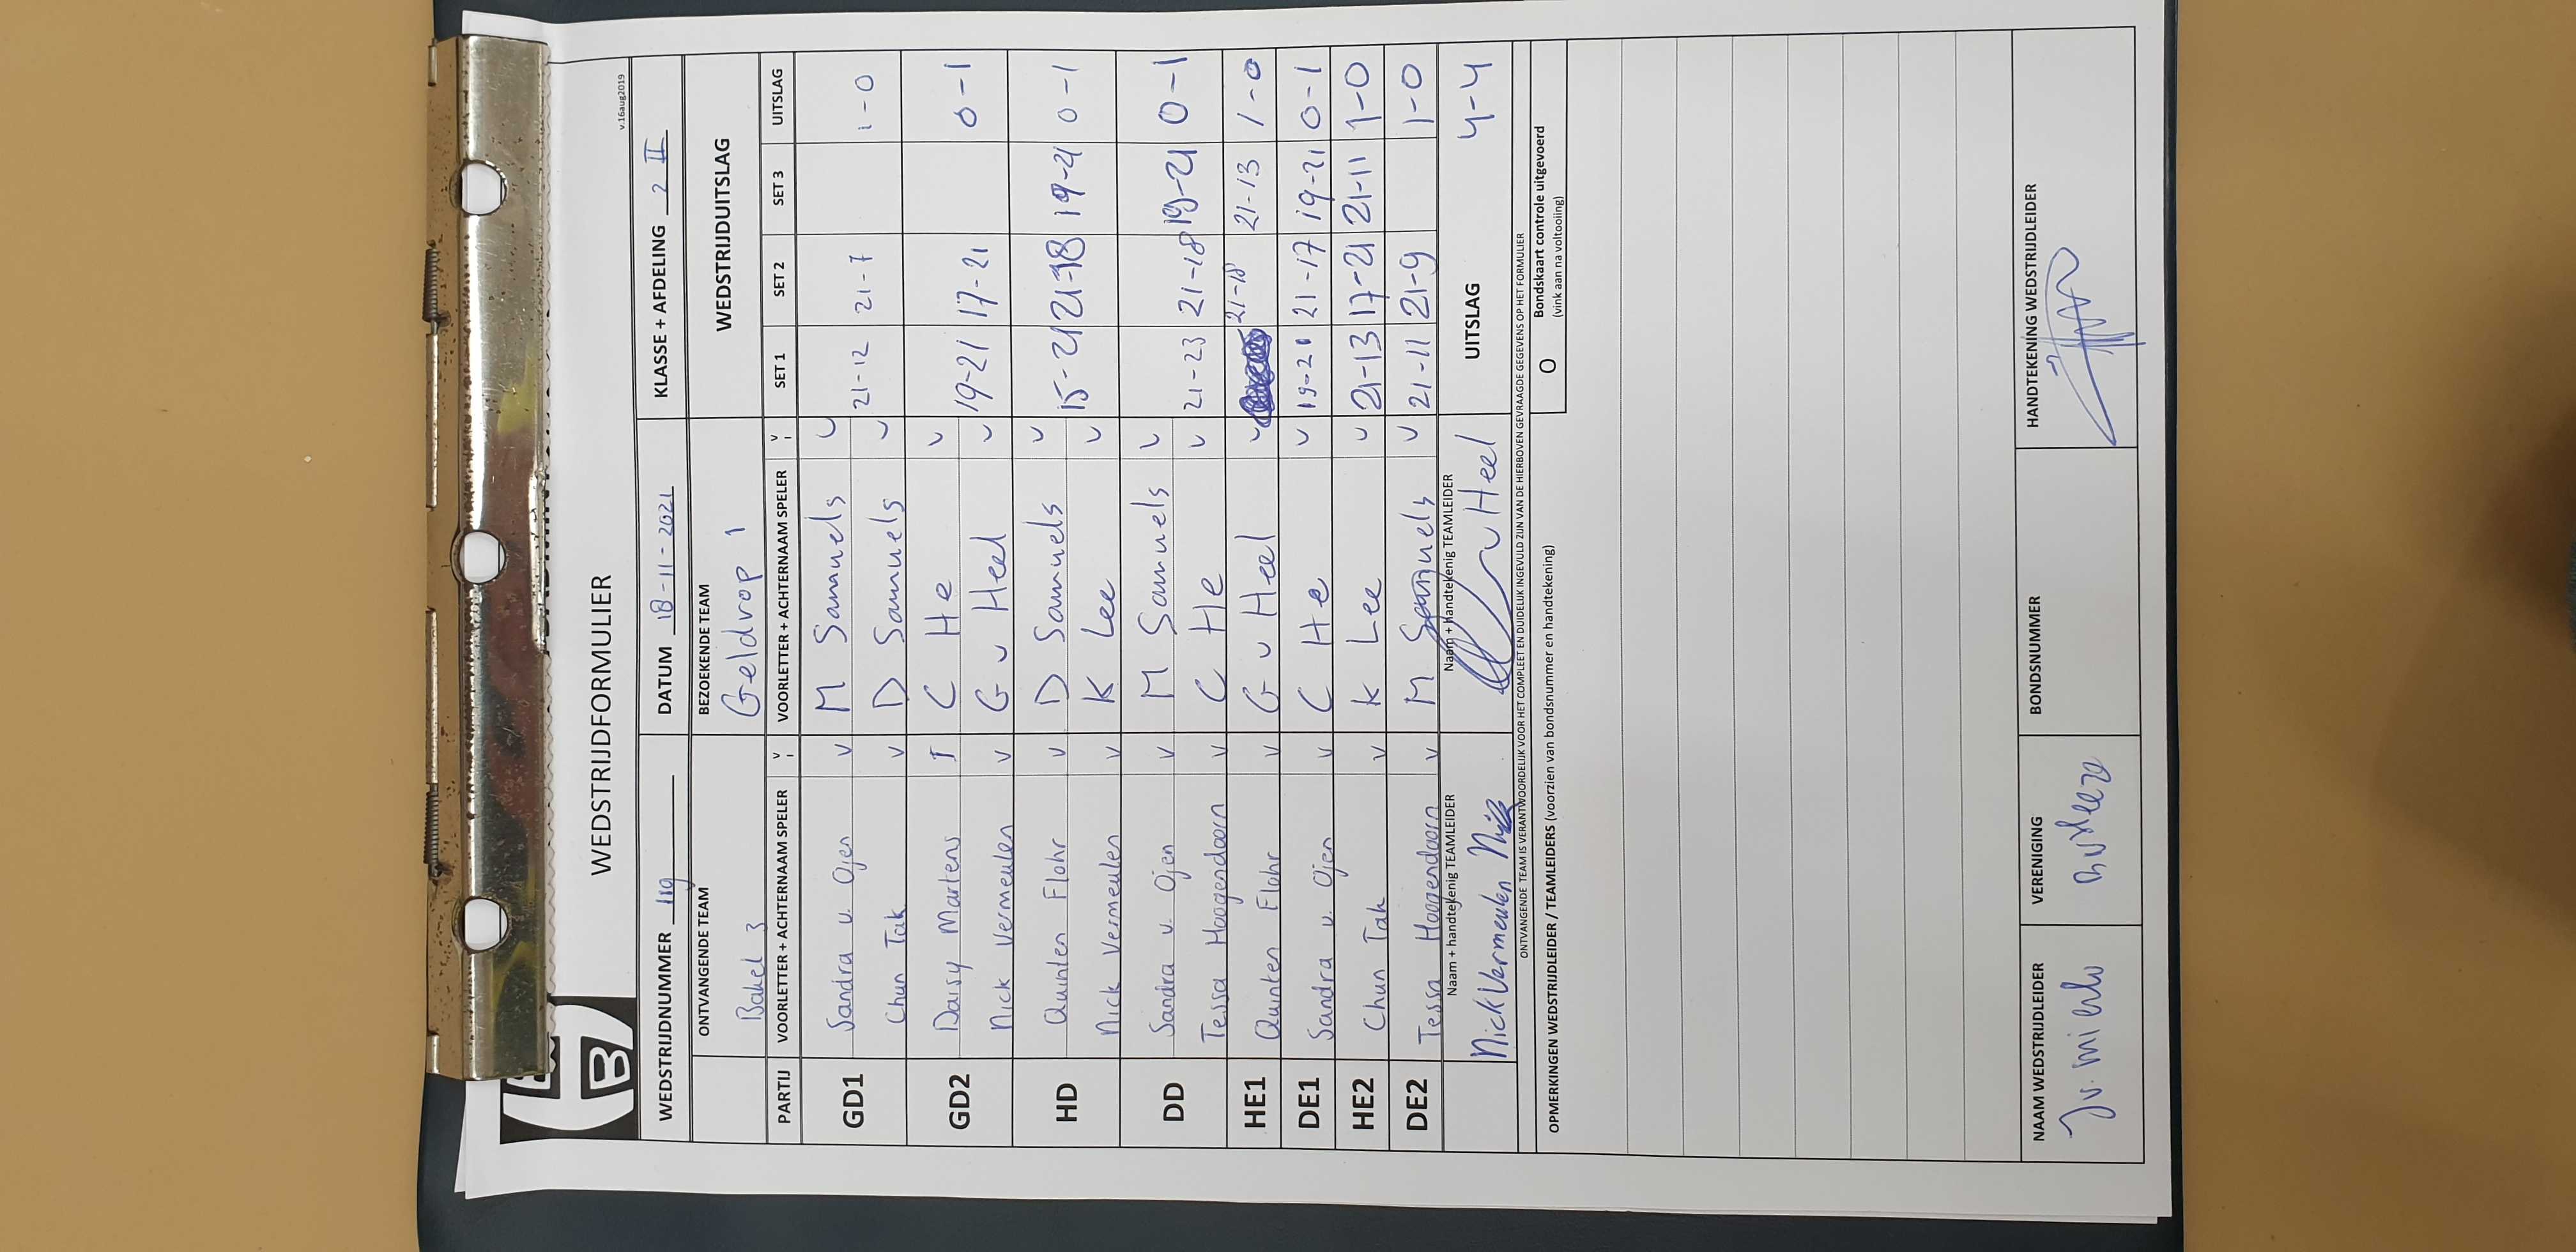 WEDSTRIJDFORMULIER
v.16aug2019
WEDSTRIJDNUMMER 119 DATUM 18-11-2021 KLASSE + AFDELING 2 II
ONTVANGENDE TEAM BEZOEKENDE TEAM WEDSTRIJDUITSLAG
Bakel 3 Geldrop 1
PARTIJ VOORLETTER + ACHTERNAAM SPELER V I VOORLETTER + ACHTERNAAM SPELER V I SET 1 SET 2 SET 3 UITSLAG
GD1 Sandra v. Ojen v M Samuels v 21-12 21-7 1-0
Chun Tak v D Samuels v
GD2 Daisy Martens I C He v 19-21 17-21 0-1
Nick Vermeulen v G v Heel v
HD Quinten Flohr v D Samuels v 15-21 21-18 19-21 0-1
Nick Vermeulen v K Lee v
DD Sandra v. Ojen v M Samuels v 21-23 21-18 19-21 0-1
Tessa Hoogendoorn v C He v
HE1 Quinten Flohr v G v Heel v 21-18 21-13 1-0
DE1 Sandra v. Ojen v C He v 19-21 21-17 19-21 0-1
HE2 Chun Tak v K Lee v 21-13 17-21 21-11 1-0
DE2 Tessa Hoogendoorn v M Samuels v 21-11 21-9 1-0
Naam + handtekenig TEAMLEIDER Naam + handtekenig TEAMLEIDER UITSLAG 4-4
Nick Vermeulen v Heel
ONTVANGENDE TEAM IS VERANTWOORDELIJK VOOR HET COMPLEET EN DUIDELIJK INGEVULD ZIJN VAN DE HIERBOVEN GEVRAAGDE GEGEVENS OP HET FORMULIER
OPMERKINGEN WEDSTRIJDLEIDER / TEAMLEIDERS (voorzien van bondsnummer en handtekening)
O Bondskaart controle uitgevoerd
(vink aan na voltooiing)
NAAM WEDSTRIJDLEIDER VERENIGING BONDSNUMMER HANDTEKENING WEDSTRIJDLEIDER